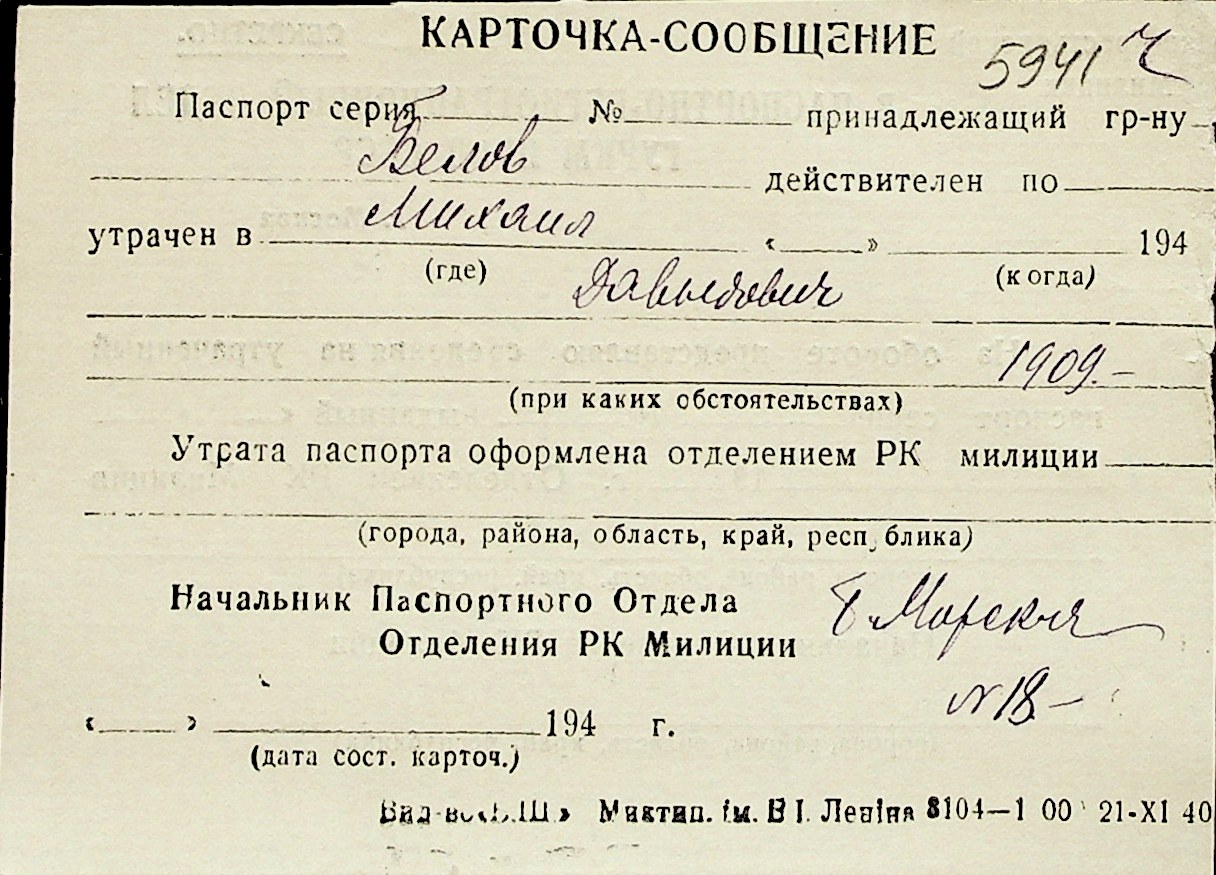 КАРТОЧКА-СООБЩЕНИЕ
5941
Паспорт серия № принадлежащий гр-ну
Белов
действителен по
Михаил
утрачен в « » 194
(где) (когда)
Давыдович
1909.-
(при каких обстоятельствах)
Утрата паспорта оформлена отделением РК милиции
(города, района, область, край, респ блика)
Начальник Паспортного Отдела
Отделения РК Милиции
Б. Морская
№ 18.-
« » 194 г.
(дата сост. карточ.)
Миктип. ім. В І. Леніна 8104—1 00 21-XI 40